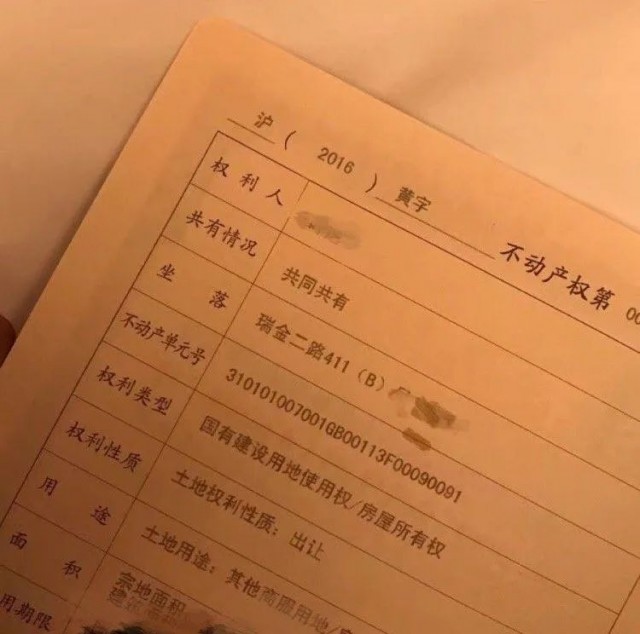 沪 ( 2016 ) 黄字 不动产权第 00
权利人
共有情况 共同共有
坐落 瑞金二路411(B)
不动产单元号 310101007001GB00113F00090091
权利类型 国有建设用地使用权/房屋所有权
权利性质 土地权利性质：出让
用途 土地用途：其他商服用地/
面积 宗地面积
用期限